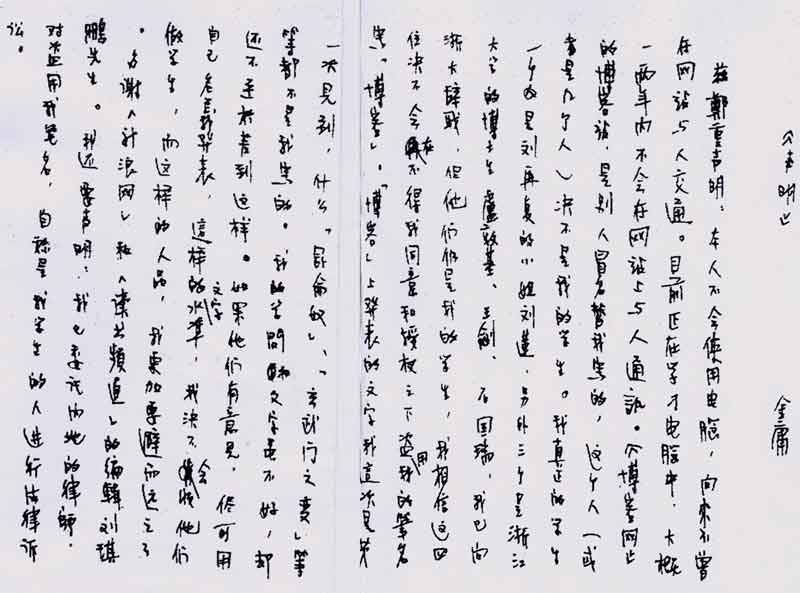 《声明》 金庸
茲鄭重声明：本人不会使用电腦，向來不曾
在网站与人交通。目前正在学才电腦中，大概
一两年内不会在网站上与人通訊。《博客网》
的博客站，是别人冒名替我寫的，这个人（或
者是几个人）决不是我的学生。我真正的学生
一个女是刘再复的小姐刘蓮，另外三个是浙江
大学的博士生盧敦基、王劍、石国瑞，我已向
浙大辞职，但他们仍是我的学生，我相信这四
位决不会在不得我同意和授权之下盗用我的筆名
寫「博客」。「博客」上發表的文字我這次是第
一次見到，什么「昆侖奴」、「玄武门之变」等
等都不是我寫的。我的学問和文字虽不好，却
还不至於差到这样。如果他们有意見，儘可用
自己名義發表，這样的文字水準，我决不会收他们
做学生，而这样的人品，我更加要避而远之了
。多谢《新浪网》和《读书頻道》的编輯刘琪
鹏先生。我还要声明：我已委託内地的律師，
对盗用我笔名，自稱是我学生的人進行法律訴
訟。